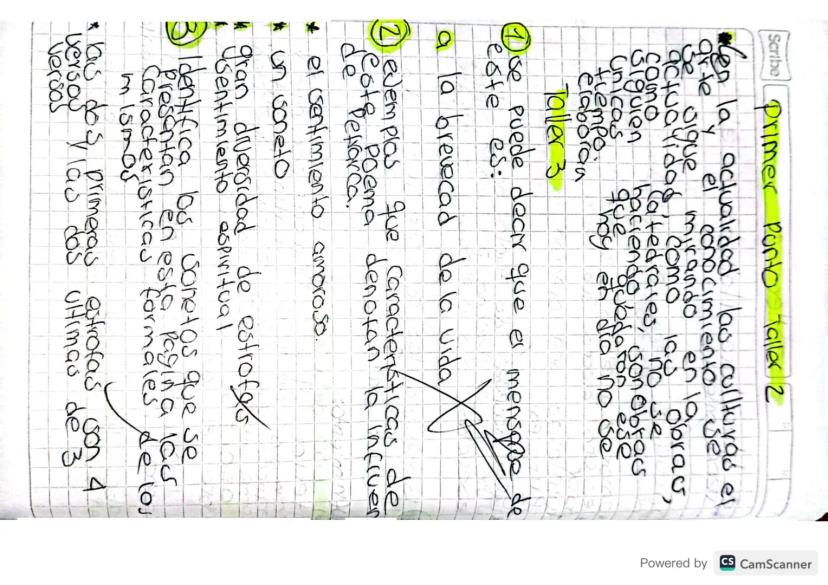 Scribe
primer Punto taller 2
*en la actualidad las cullturas el
arte y el conocimiento se
se sigue mirando en la
actualidad como las obras,
como catedrales, no se
siguien haciendo, son obras
unicas que quedaron ese
tiempo. que hoy en dia no se
elaboran
Taller 3
① se puede decir que el mensaje de
este es:
a la brevecad de la vida
② ejemplos que características de
este poema denotan la influen
de Petrarca.
* el sentimiento amoroso.
* un soneto
* gran diversidad de estrofas
* sentimiento espiritual
③ Identifica los sonetos que se
presentan en esta pagina las
caracteristicas formales de los
mismos
* las dos primeras estrofas son 4
versos y las dos ultimas de 3
versos
Powered by CS CamScanner